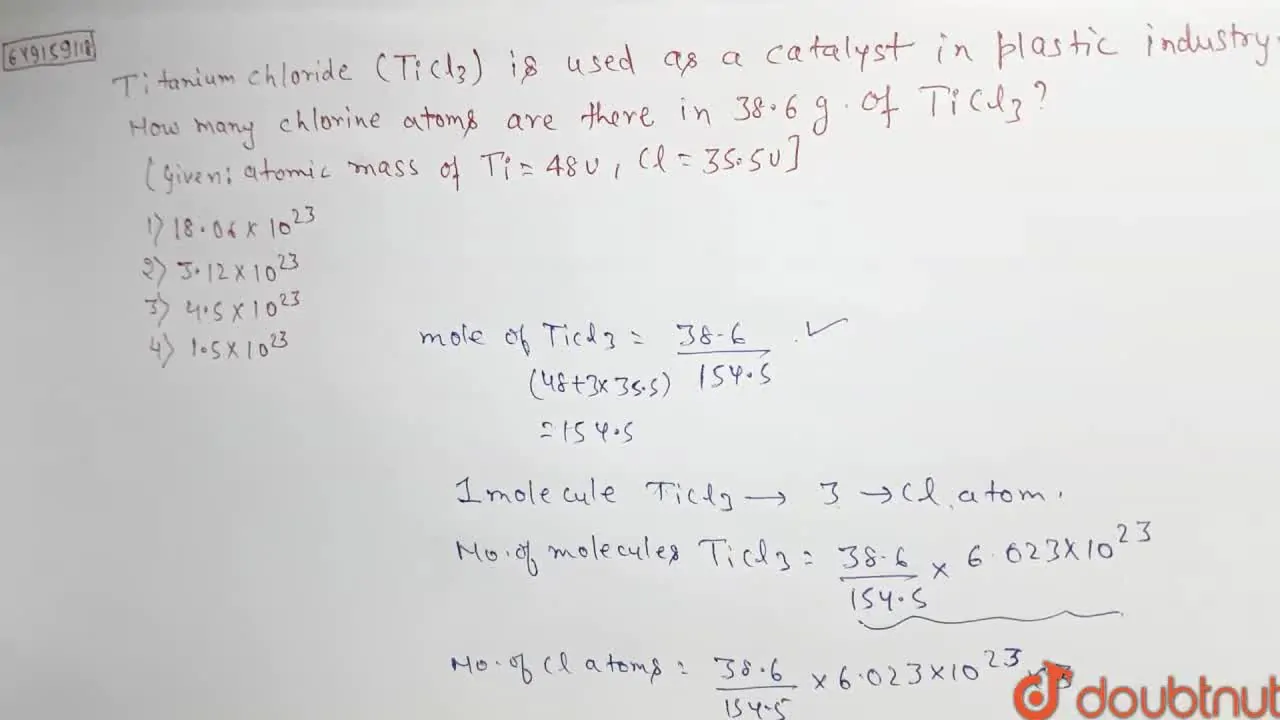 649159118
Titanium chloride (TiCl3) is used as a catalyst in plastic industry.
How many chlorine atoms are there in 38.6 g. of TiCl3?
[Given: atomic mass of Ti = 48U, Cl = 35.5U]
1) 18.06 x 10^23
2) 3.12 x 10^23
3) 4.5 x 10^23
4) 1.5 x 10^23
mole of TiCl3 = 38.6 / 154.5 ✓
(48+3x35.5)
= 154.5
1 molecule TiCl3 → 3 → Cl atom.
No. of molecules TiCl3 = 38.6 / 154.5 x 6.023 x 10^23
No. of Cl atoms = 38.6 / 154.5 x 6.023 x 10^23 x 3
doubtnut